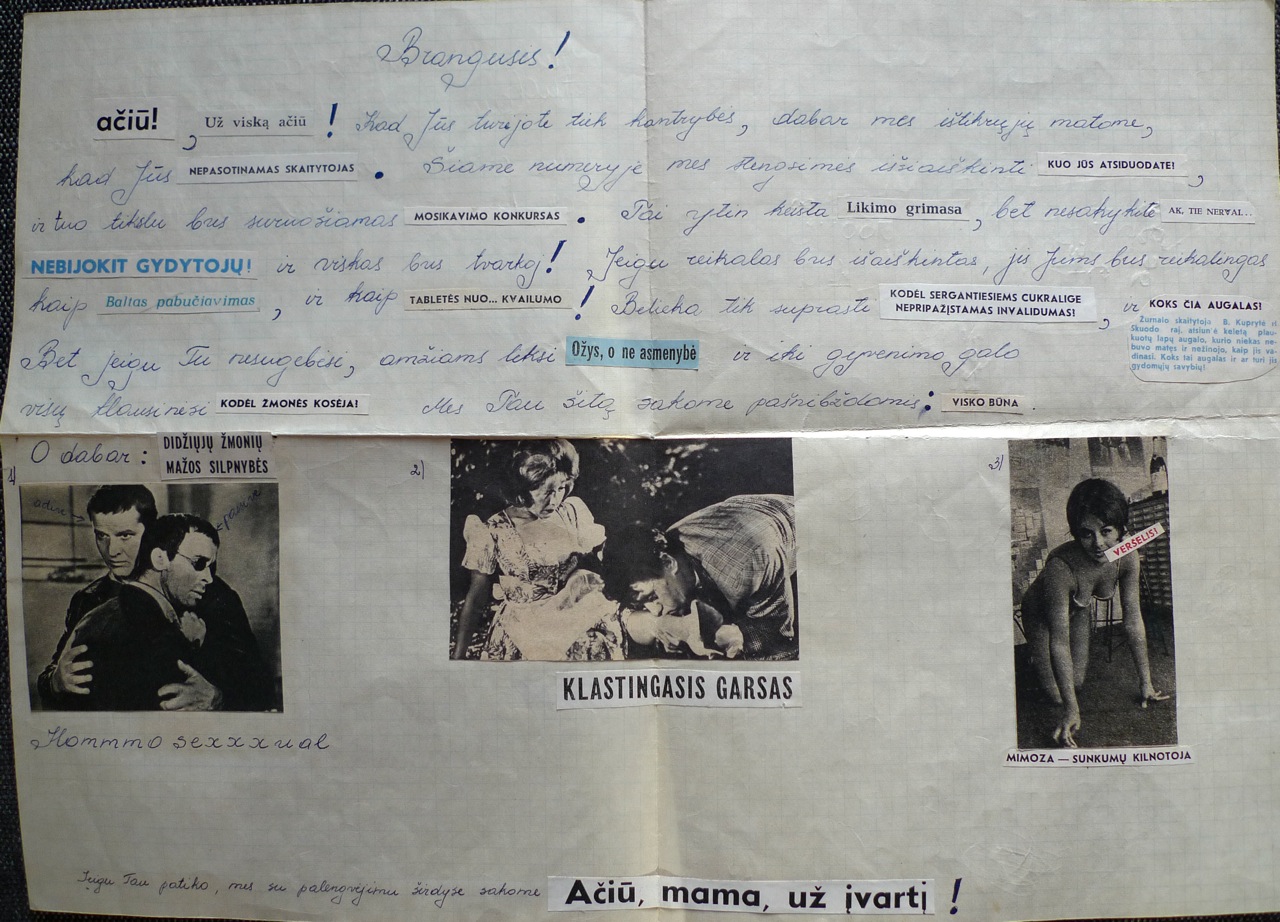 Brangusis!
ačiū! , Už viską ačiū ! Kad Jūs turėjote tiek kantrybės, dabar mes ištikrųjų matome,
kad Jūs NEPASOTINAMAS SKAITYTOJAS . Šiame numeryje mes stengsimės išsiaiškinti KUO JŪS ATSIDUODATE! ,
ir tuo tikslu bus suruošiamas MOSIKAVIMO KONKURSAS . Tai rytin keista Likimo grimasa , bet nesakykite AK, TIE NERVAI...
NEBIJOKIT GYDYTOJŲ! ir viskas bus tvarkoj! Jeigu reikalas bus išaiškintas, jis Jums bus reikalingas
kaip Baltas pabučiavimas , ir kaip TABLETĖS NUO... KVAILUMO ! Belieka tik suprasti KODĖL SERGANTIESIEMS CUKRALIGE NEPRIPAŽĮSTAMAS INVALIDUMAS! , ir KOKS ČIA AUGALAS?
Žurnalo skaitytoja B. Kuprytė iš
Skuodo raj. atsiuntė keletą plau-
kuotų lapų augalo, kurio niekas ne-
buvo matęs ir nežinojo, kaip jis va-
dinasi. Koks tai augalas ir ar turi jis
gydomųjų savybių?
Bet jeigu Tu nesugebėsi, amžiams liksi Ožys, o ne asmenybė ir iki gyvenimo galo
visų klausinėsi KODĖL ŽMONĖS KOSĖJA! Mes Tau šitą sakome pašnibždomis: VISKO BŪNA
O dabar: DIDŽIŲJŲ ŽMONIŲ
MAŽOS SILPNYBĖS
1)
2)
3)
VERSELIS!
KLASTINGASIS GARSAS
Hommmo sexxxual
MIMOZA — SUNKUMŲ KILNOTOJA
Jeigu Tau patiko, mes su palengvėjimu širdyse sakome Ačiū, mama, už įvartį !